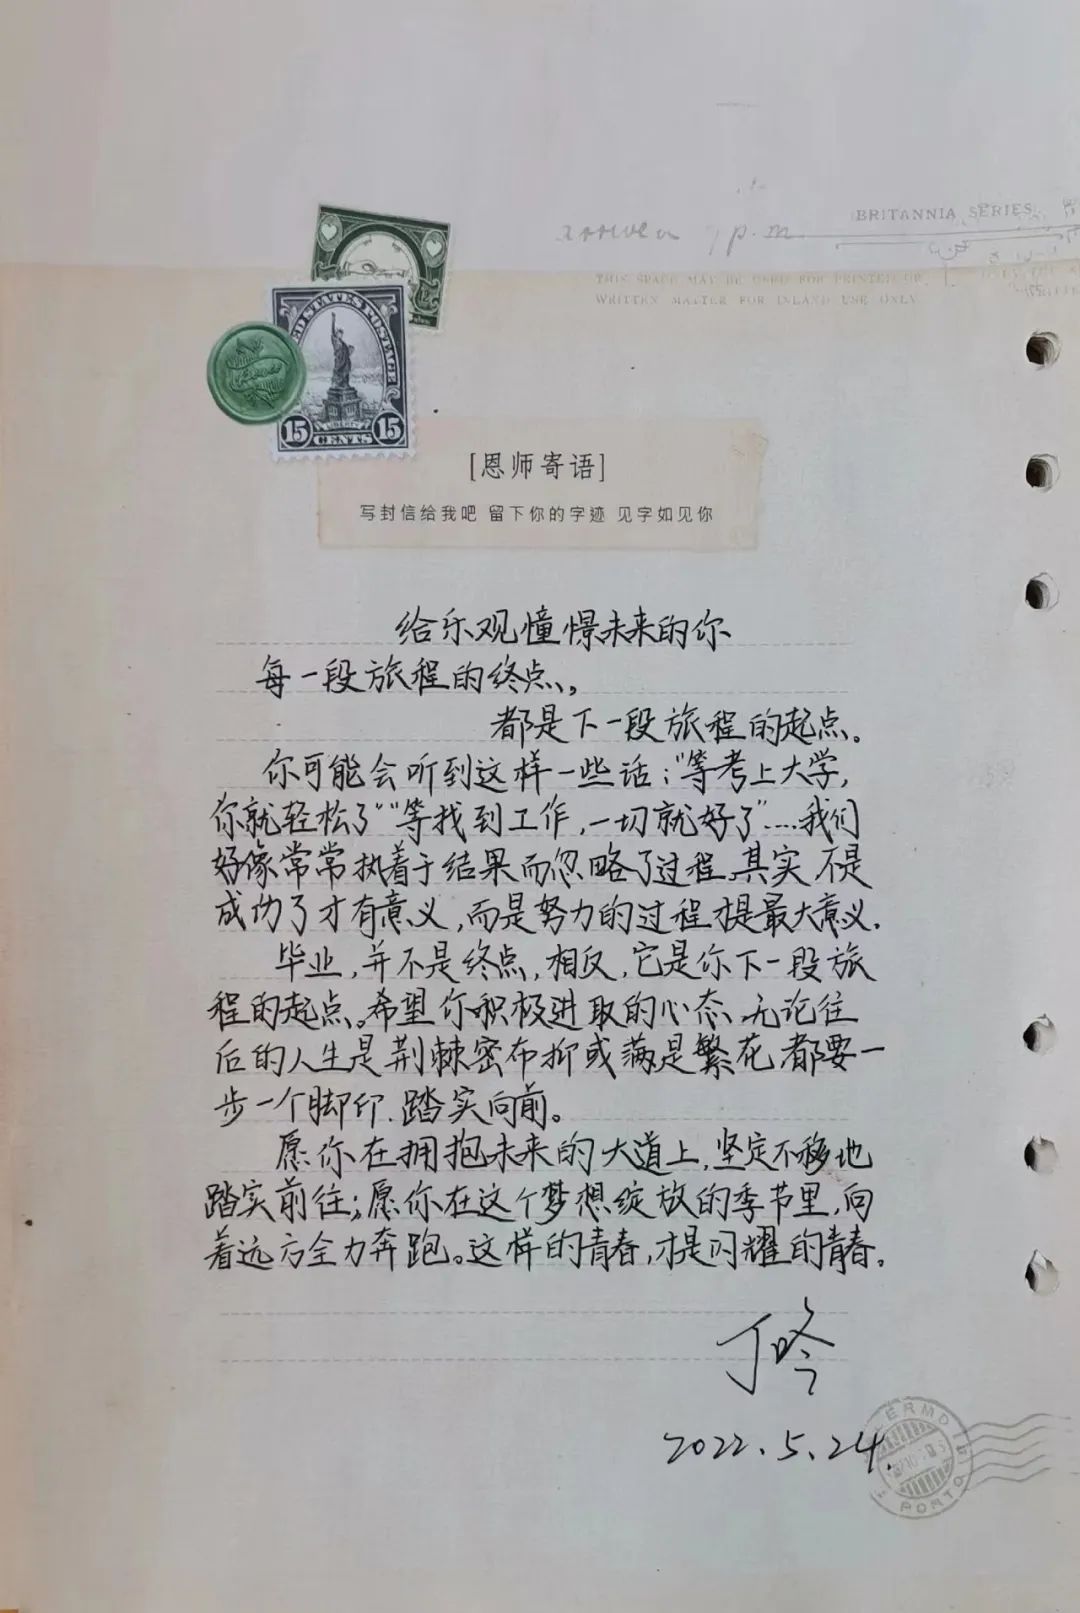 BRITANNIA SERIES
p.m
THIS SPACE MAY BE USED FOR PRINTED OR
WRITTEN MATTER FOR INLAND USE ONLY
STATES POSTAGE
LIBERTY
15 CENTS 15
[恩师寄语]
写封信给我吧 留下你的字迹 见字如见你
给乐观憧憬未来的你
每一段旅程的终点,
都是下一段旅程的起点。
你可能会听到这样一些话:"等考上大学,
你就轻松了""等找到工作,一切就好了"……我们
好像常常执着于结果而忽略了过程,其实,不是
成功了才有意义,而是努力的过程才是最大意义.
毕业,并不是终点,相反,它是你下一段旅
程的起点。希望你积极进取的心态,无论往
后的人生是荆棘密布抑或满是繁花,都要一
步一个脚印.踏实向前。
愿你在拥抱未来的大道上,坚定不移地
踏实前往;愿你在这个梦想绽放的季节里,向
着远方全力奔跑。这样的青春,才是闪耀的青春.
丁吟
2022.5.24.
PORTO